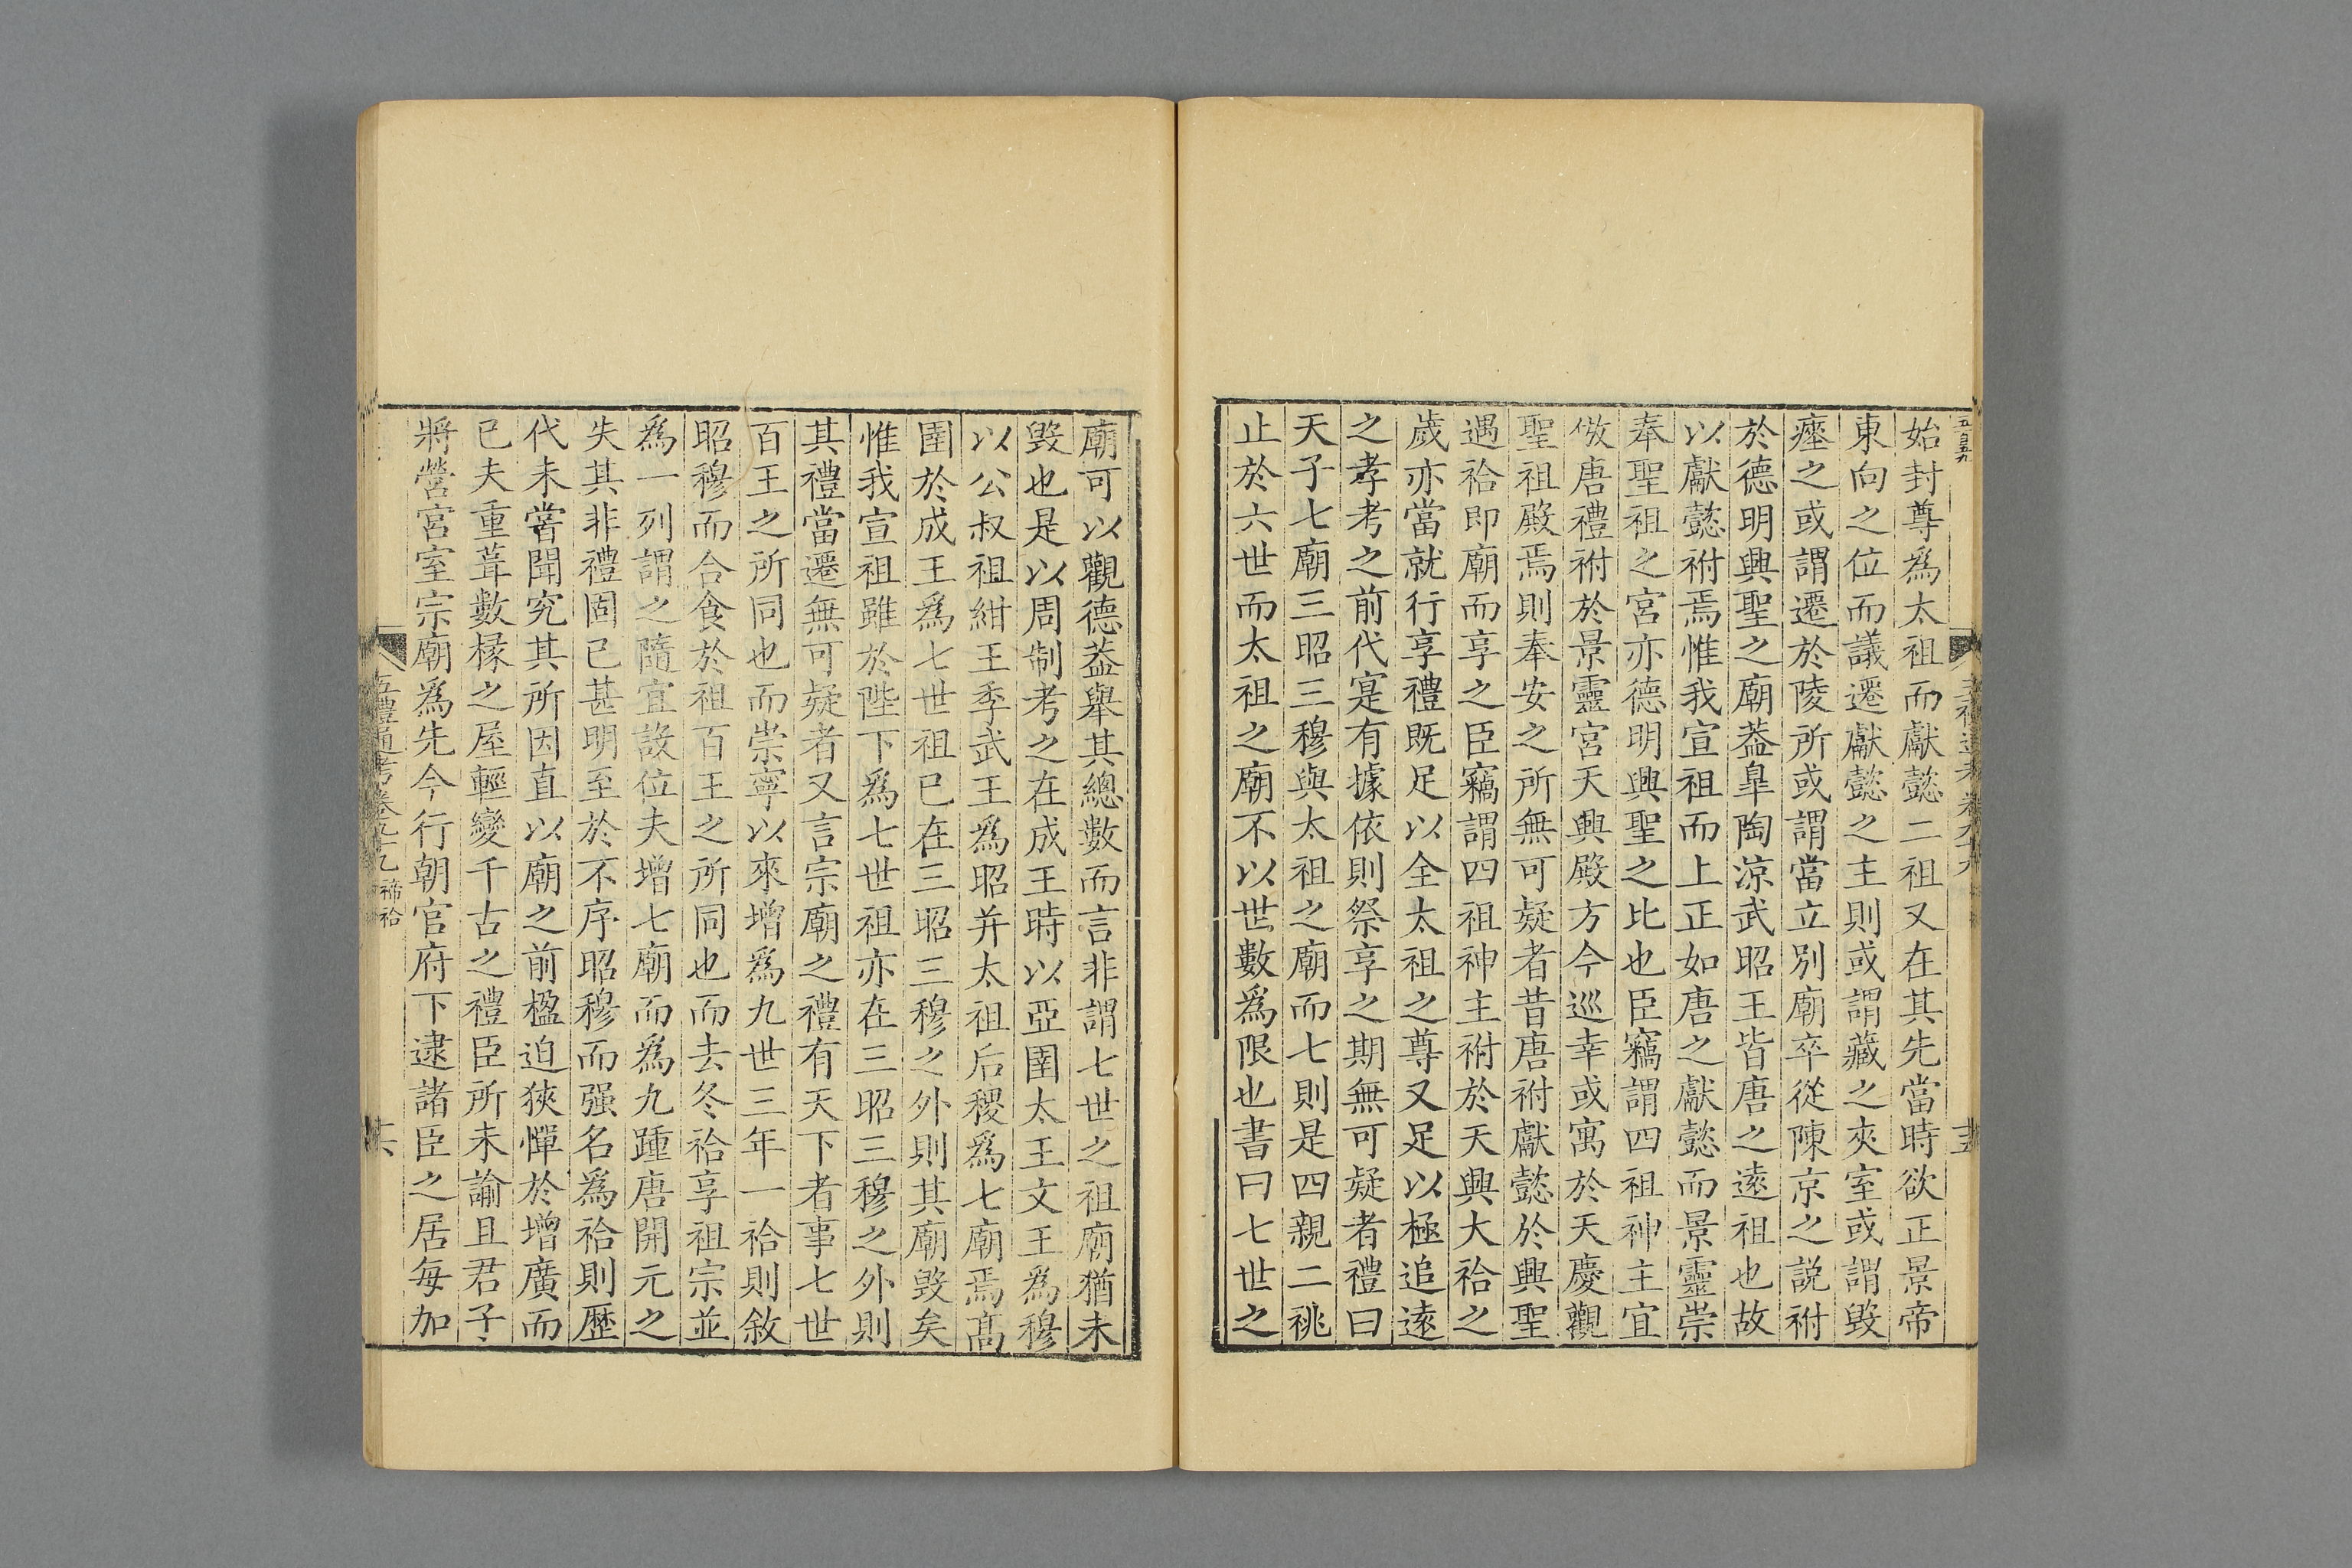 始封尊爲太祖而獻懿二祖又在其先當時欲正景帝
東向之位而議遷獻懿之主則或謂藏之夾室或謂毀
瘞之或謂遷於陵所或謂當立別廟卒從陳京之説祔
於德明興聖之廟葢皐陶涼武昭王皆唐之遠祖也故
以獻懿祔焉惟我宣祖而上正如唐之獻懿而景靈崇
奉聖祖之宮亦德明興聖之比也臣竊謂四祖神主宜
倣唐禮祔於景靈宮天興殿方今巡幸或寓於天慶觀
聖祖殿焉則奉安之所無可疑者昔唐祔獻懿於興聖
遇祫即廟而享之臣竊謂四祖神主祔於天興大祫之
歲亦當就行享禮既足以全太祖之尊又足以極追遠
之孝考之前代寔有據依則祭享之期無可疑者禮曰
天子七廟三昭三穆與太祖之廟而七則是四親二祧
止於六世而太祖之廟不以世數爲限也書曰七世之
廟可以觀德葢舉其總數而言非謂七世之祖廟猶未
毀也是以周制考之在成王時以亞圉太王文王爲穆
以公叔祖紺王季武王爲昭并太祖后稷爲七廟焉髙
圉於成王爲七世祖已在三昭三穆之外則其廟毀矣
惟我宣祖雖於陛下爲七世祖亦在三昭三穆之外則
其禮當遷無可疑者又言宗廟之禮有天下者事七世
百王之所同也而崇寧以來增爲九世三年一祫則敘
昭穆而合食於祖百王之所同也而去冬祫享祖宗並
爲一列謂之隨宜設位夫增七廟而爲九踵唐開元之
失其非禮固已甚明至於不序昭穆而强名爲祫則歷
代未嘗聞究其所因直以廟之前楹迫狹憚於增廣而
已夫重葺數椽之屋輕變千古之禮臣所未諭且君子
將營宮室宗廟爲先今行朝官府下逮諸臣之居每加
五禮通考卷九十九 禘祫